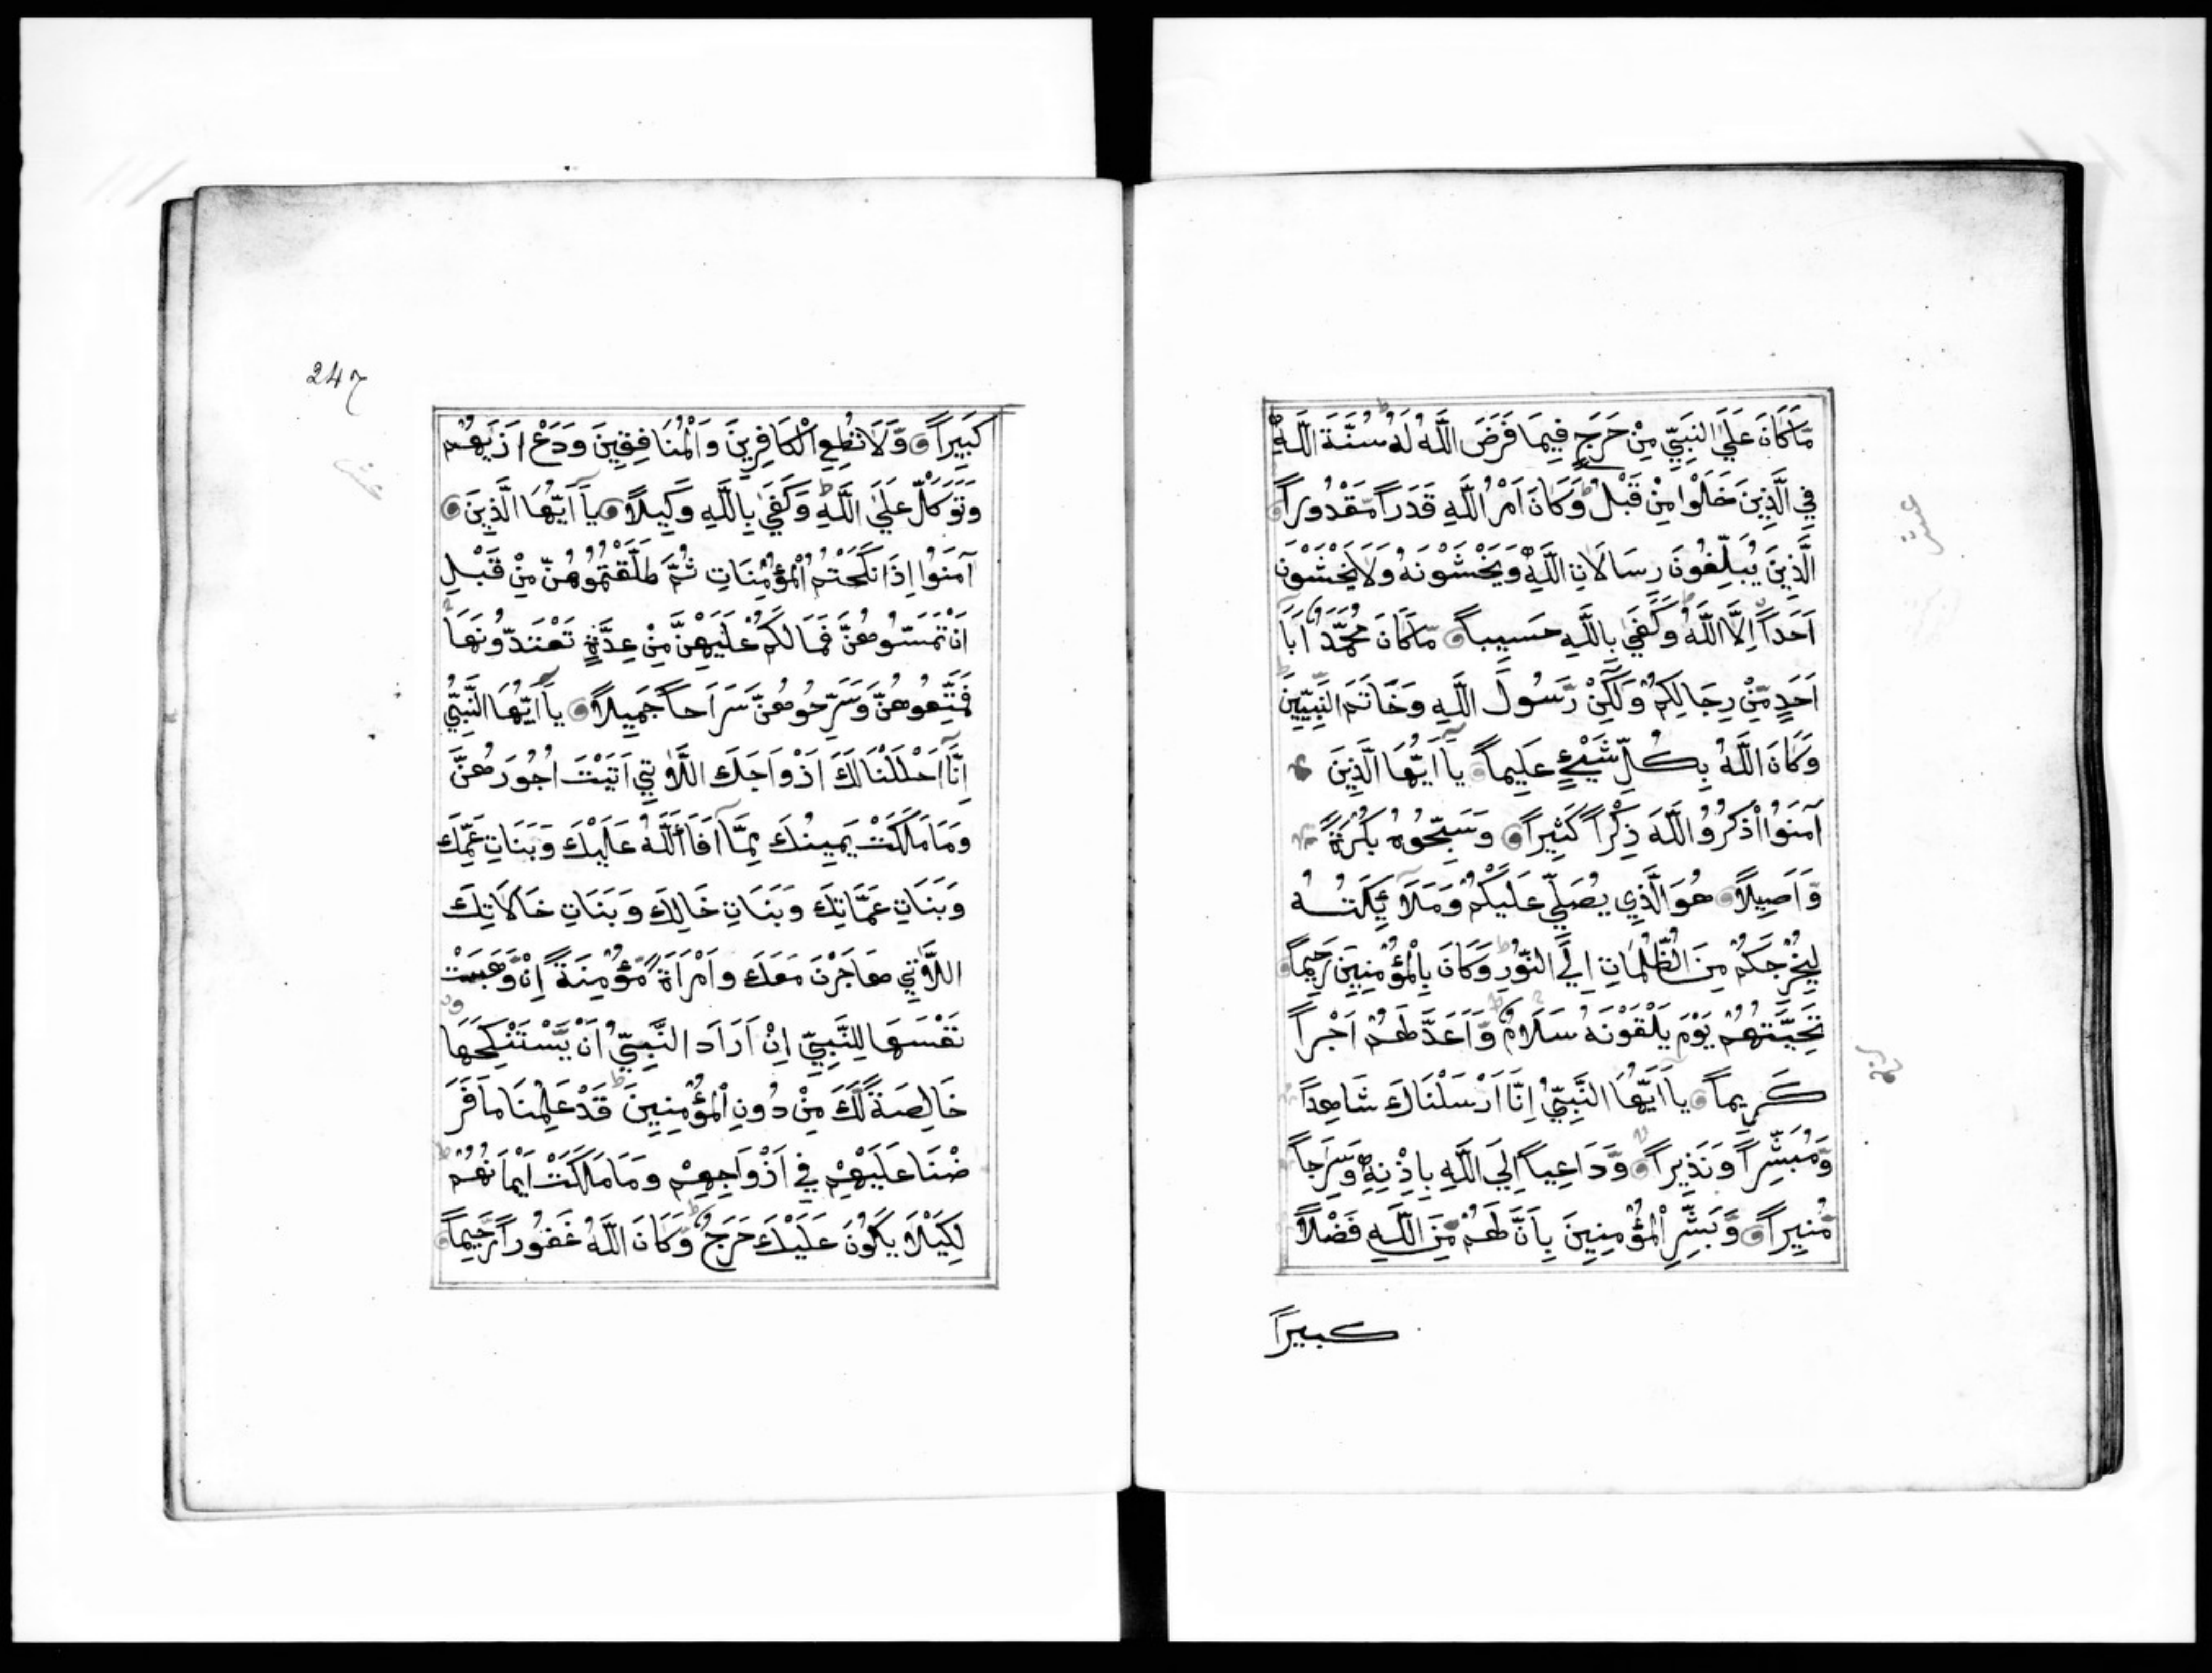 مَّا كَانَ عَلَي النَّبِيِّ مِنْ حَرَجٍ فِيمَا فَرَضَ اللَّهُ لَهُ سُنَّةَ اللَّهِ
فِي الَّذِينَ خَلَوْا مِنْ قَبْلُ وَكَانَ اَمْرُ اللَّهِ قَدَراً مَّقْدُوراً
الَّذِينَ يُبَلِّغُونَ رِسَالَاتِ اللَّهِ وَيَخْشَوْنَهُ وَلَا يَخْشَوْنَ
اَحَداً اِلَّا اللَّهَ وَكَفَي بِاللَّهِ حَسِيباً مَّا كَانَ مُحَمَّدٌ اَبَا
اَحَدٍ مِّنْ رِجَالِكُمْ وَلَكِنْ رَّسُولَ اللَّهِ وَخَاتَمَ النَّبِيِّينَ
وَكَانَ اللَّهُ بِكُلِّ شَيْءٍ عَلِيماً يَا اَيُّهَا الَّذِينَ
آمَنُوا اذْكُرُوا اللَّهَ ذِكْراً كَثِيراً وَسَبِّحُوهُ بُكْرَةً
وَّاَصِيلاً هُوَ الَّذِي يُصَلِّي عَلَيْكُمْ وَمَلَائِكَتُهُ
لِيُخْرِجَكُمْ مِنَ الظُّلُمَاتِ اِلَي النُّورِ وَكَانَ بِالْمُؤْمِنِينَ رَحِيماً
تَحِيَّتُهُمْ يَوْمَ يَلْقَوْنَهُ سَلَامٌ وَّاَعَدَّ لَهُمْ اَجْراً
كَرِيماً يَا اَيُّهَا النَّبِيُّ اِنَّا اَرْسَلْنَاكَ شَاهِداً
وَّمُبَشِّراً وَنَذِيراً وَّدَاعِياً اِلَي اللَّهِ بِاِذْنِهِ وَسِرَاجاً
مُّنِيراً وَّبَشِّرِ الْمُؤْمِنِينَ بِاَنَّ لَهُمْ مِّنَ اللَّهِ فَضْلاً
كبيراً
247
كَبِيراً وَّلَا تُطِعِ الْكَافِرِينَ وَالْمُنَافِقِينَ وَدَعْ اَذَيهُمْ
وَتَوَكَّلْ عَلَي اللَّهِ وَكَفَي بِاللَّهِ وَكِيلاً يَا اَيُّهَا الَّذِينَ
آمَنُوا اِذَا نَكَحْتُمُ الْمُؤْمِنَاتِ ثُمَّ طَلَّقْتُمُوهُنَّ مِنْ قَبْلِ
اَنْ تَمَسُّوهُنَّ فَمَا لَكُمْ عَلَيْهِنَّ مِنْ عِدَّةٍ تَعْتَدُّونَهَا
فَمَتِّعُوهُنَّ وَسَرِّحُوهُنَّ سَرَاحاً جَمِيلاً يَا اَيُّهَا النَّبِيُّ
اِنَّا اَحْلَلْنَا لَكَ اَزْوَاجَكَ اللَّاتِي اَتَيْتَ اُجُورَهُنَّ
وَمَا مَلَكَتْ يَمِينُكَ مِمَّا اَفَا اللَّهُ عَلَيْكَ وَبَنَاتِ عَمِّكَ
وَبَنَاتِ عَمَّاتِكَ وَبَنَاتِ خَالِكَ وَبَنَاتِ خَالَاتِكَ
اللَّاتِي هَاجَرْنَ مَعَكَ وَامْرَاَةً مُّؤْمِنَةً اِنْ وَّهَبَتْ
نَفْسَهَا لِلنَّبِيِّ اِنْ اَرَادَ النَّبِيُّ اَنْ يَّسْتَنْكِحَهَا
خَالِصَةً لَّكَ مِنْ دُونِ الْمُؤْمِنِينَ قَدْ عَلِمْنَا مَا فَرَ
ضْنَا عَلَيْهِمْ فِي اَزْوَاجِهِمْ وَمَا مَلَكَتْ اَيْمَانُهُمْ
لِكَيْلَا يَكُونَ عَلَيْكَ حَرَجٌ وَّكَانَ اللَّهُ غَفُوراً رَّحِيماً